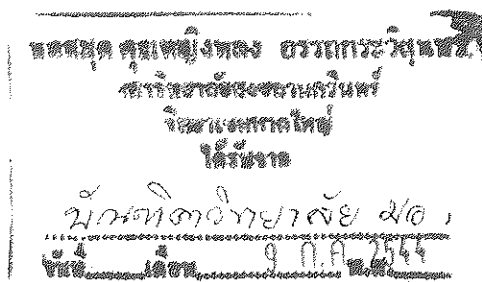 หอสมุด คุณหญิงหลง อรรถกระวีสุนทร
มหาวิทยาลัยสงขลานครินทร์
วิทยาเขตหาดใหญ่
ได้รับจาก
บัณฑิตวิทยาลัย มอ.
วันที่ เดือน 9 ก.ค. 2544